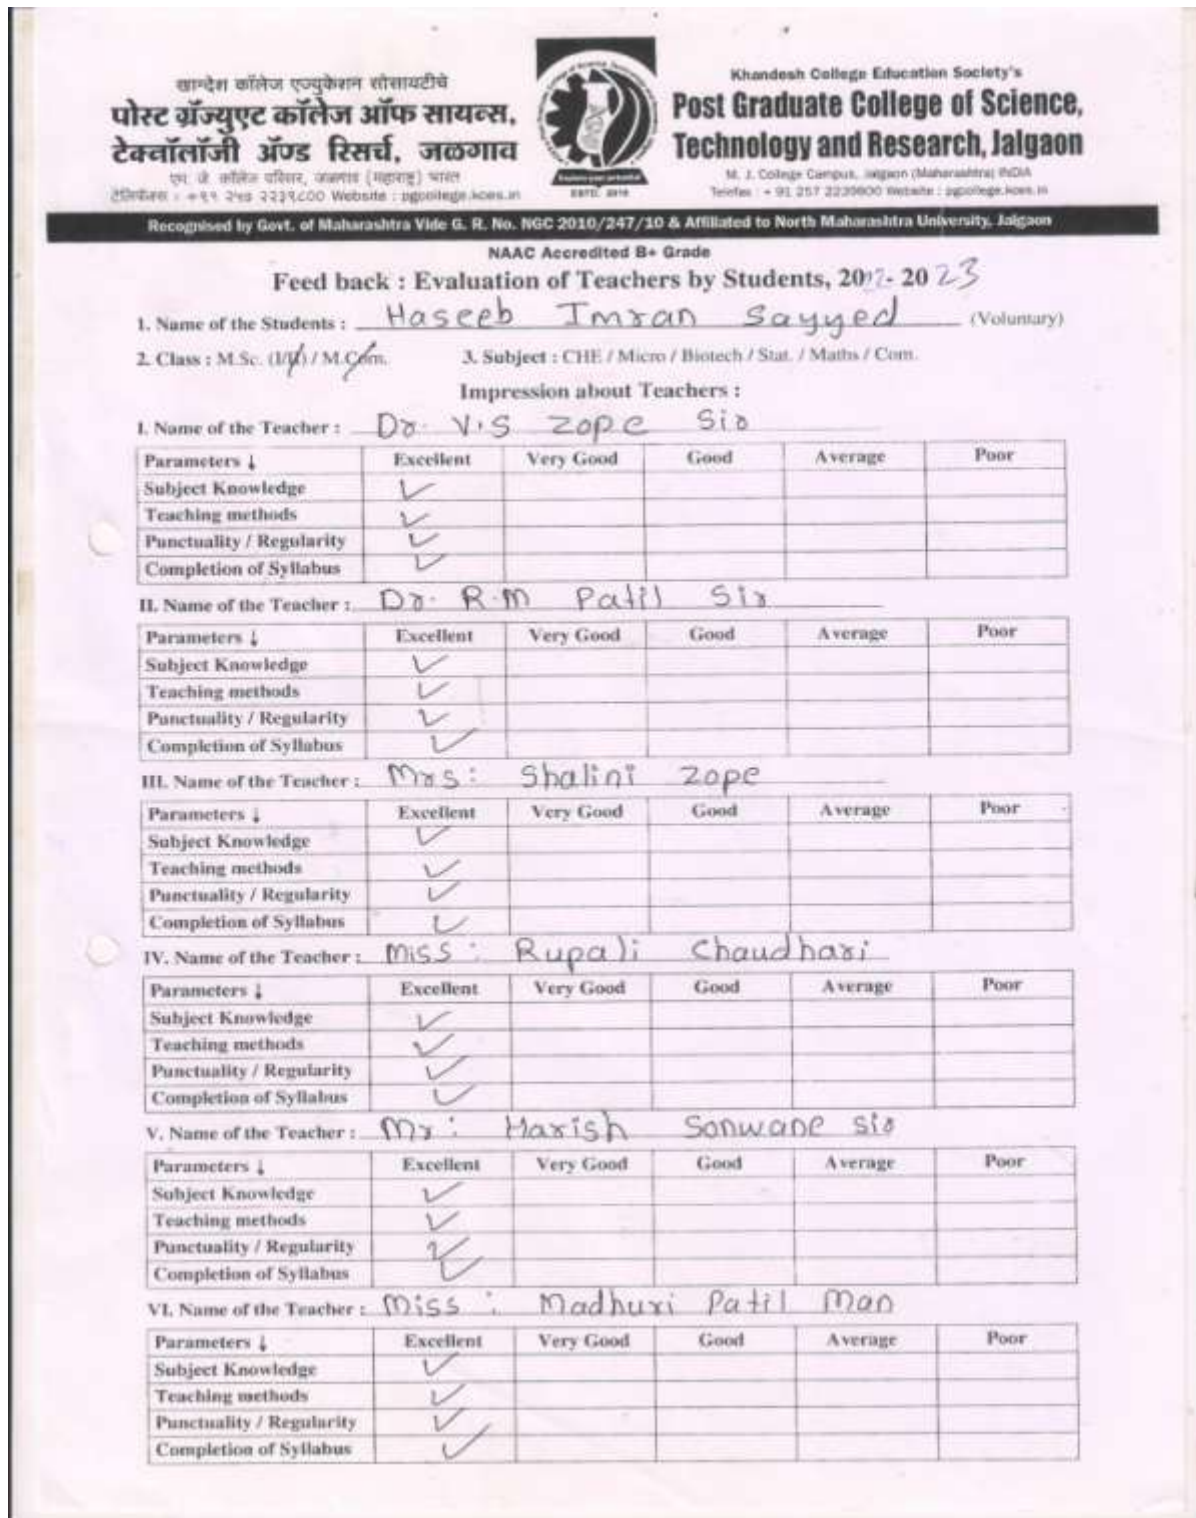 खान्देश कॉलेज एज्युकेशन सोसायटीचे
पोस्ट ग्रॅज्युएट कॉलेज ऑफ सायन्स,
टेक्नॉलॉजी अ‍ॅण्ड रिसर्च, जळगाव
एम. जे. कॉलेज परिसर, जळगाव (महाराष्ट्र) भारत
टेलिफॅक्स : +९१ २५७ २२३९८०० Website : pgcollege.kces.in
ESTD. 2010
Khandesh College Education Society's
Post Graduate College of Science,
Technology and Research, Jalgaon
M. J. College Campus, Jalgaon (Maharashtra) INDIA
Telefax : + 91 257 2239800 Website : pgcollege.kces.in
Recognised by Govt. of Maharashtra Vide G. R. No. NGC 2010/247/10 & Affiliated to North Maharashtra University, Jalgaon
NAAC Accredited B+ Grade
Feed back : Evaluation of Teachers by Students, 2022- 2023
1. Name of the Students : Haseeb Imran Sayyed (Voluntary)
2. Class : M.Sc. (I/II) / M.Com. 3. Subject : CHE / Micro / Biotech / Stat. / Maths / Com.
Impression about Teachers :
I. Name of the Teacher : Dr. V.S Zope Sir
Parameters ↓ Excellent Very Good Good Average Poor
Subject Knowledge ✓
Teaching methods ✓
Punctuality / Regularity ✓
Completion of Syllabus ✓
II. Name of the Teacher : Dr. R.M Patil Sir
Parameters ↓ Excellent Very Good Good Average Poor
Subject Knowledge ✓
Teaching methods ✓
Punctuality / Regularity ✓
Completion of Syllabus ✓
III. Name of the Teacher : Mrs: Shalini Zope
Parameters ↓ Excellent Very Good Good Average Poor
Subject Knowledge ✓
Teaching methods ✓
Punctuality / Regularity ✓
Completion of Syllabus ✓
IV. Name of the Teacher : Miss: Rupali Chaudhari
Parameters ↓ Excellent Very Good Good Average Poor
Subject Knowledge ✓
Teaching methods ✓
Punctuality / Regularity ✓
Completion of Syllabus ✓
V. Name of the Teacher : Mr: Harish Sonwane Sir
Parameters ↓ Excellent Very Good Good Average Poor
Subject Knowledge ✓
Teaching methods ✓
Punctuality / Regularity ✓
Completion of Syllabus ✓
VI. Name of the Teacher : Miss: Madhuri Patil Man
Parameters ↓ Excellent Very Good Good Average Poor
Subject Knowledge ✓
Teaching methods ✓
Punctuality / Regularity ✓
Completion of Syllabus ✓